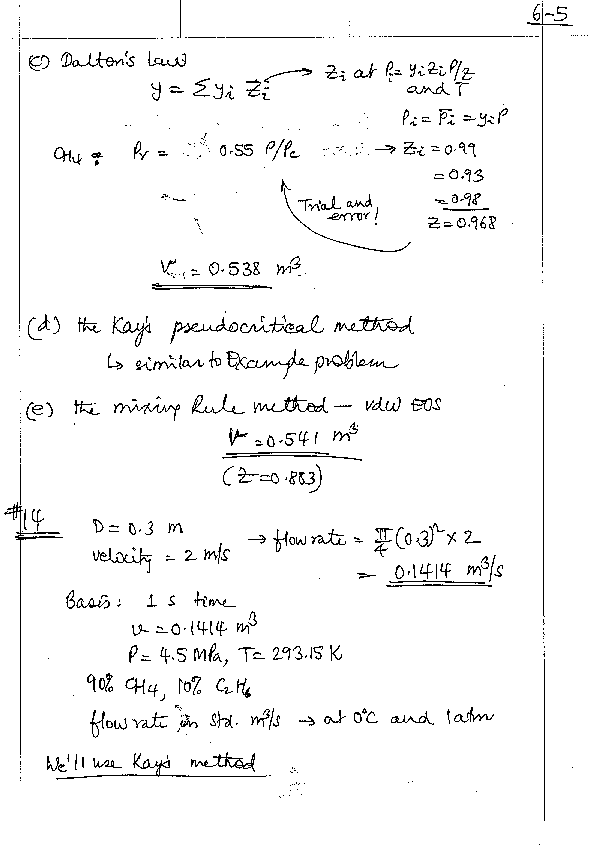 6-5
(c) Dalton's Law
y = Σ yi Zi → Zi at Pi = yi Zi P/Z
and T
Pi = P̄i = yi P
CH4 : Pr = 0.55 P/Pc → Zi = 0.99
= 0.93
= 0.98
Z = 0.968
Trial and
error!
V = 0.538 m³
(d) the Kay's pseudocritical method
↳ similar to Example problem
(e) the mixing Rule method — vdW EOS
V = 0.541 m³
(Z = 0.883)
#14
D = 0.3 m
velocity = 2 m/s → flow rate = π/4 (0.3)² × 2
= 0.1414 m³/s
Basis: 1 s time
V = 0.1414 m³
P = 4.5 MPa, T = 293.15 K
90% CH4, 10% C2H6
flow rate in std. m³/s → at 0°C and 1 atm
We'll use Kay's method